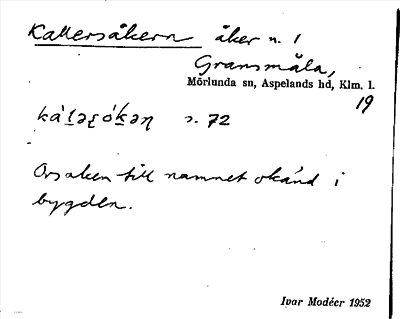 Kallersåkern åker n. 1
Gransmåla,
Mörlunda sn, Aspelands hd, Klm. l.
19
s. 72
Orsaken till namnet okänd i
bygden.
Ivar Modéer 1952